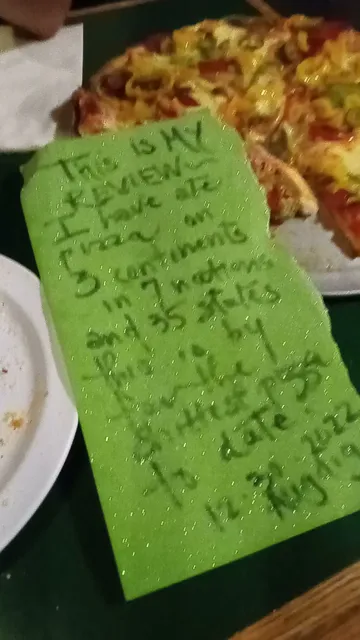 This is MY
REVIEW~
I have ate
Pizza on
3 continents
in 7 nations
and 35 states
this is by
far the
shittest pizza
to date
12.30.2022